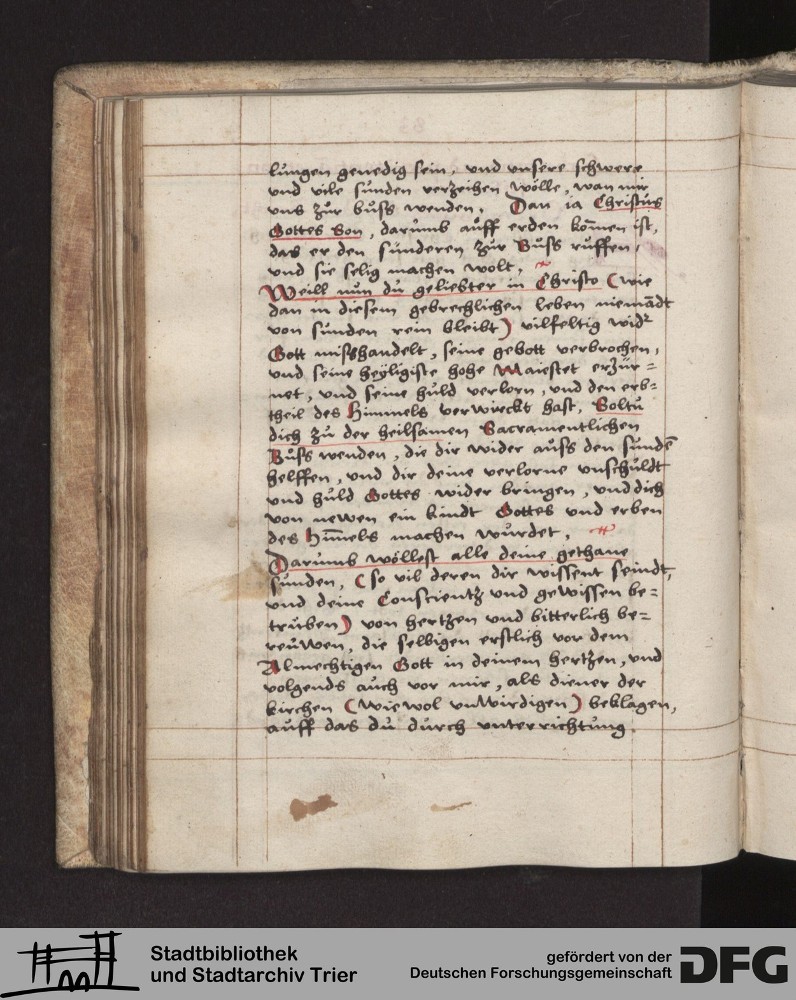 lungen genedig sein, und unsere schwere
und vile sunden verzeihen wölle, wan mir
uns zur buss wenden. Dan ia Christus
Gottes Son, darumb auff erden kom̄en ist,
das er den sünderen zur Buss ruffen,
und sie selig machen wolt.
Weill nun du geliebter in Christo (wie
dan in diesem gebrechlichen leben niemādt
von sunden rein bleibt) vilfeltig wid
Gott misshandelt, seine gebott verbrochen,
und seine heyligiste hohe Maiestet erzür=
net, und seine huld verlorn, und den erb=
theil des Himmels verwirckt hast, Soltu
dich zu der heilsamen Sacramentlichen
Buss wenden, die dir wider auss den sundē
helffen, und dir deine verlorne unschuldt
und huld Gottes wider bringen, und dich
von newen ein kindt Gottes und erben
des Him̄els machen würdet.
Darumb wöllest alle deine gethane
sunden, (so vil deren dir wissent seindt,
und deine Conscientz und gewissen be=
truben) von hertzen und bitterlich be=
reuwen, die selbigen erstlich vor dem
Almechtigen Gott in deinem hertzen, und
volgends auch vor mir, als diener der
kirchen (wiewol unwirdigen) beklagen,
auff das du durch unterrichtung
Stadtbibliothek
und Stadtarchiv Trier
gefördert von der
Deutschen Forschungsgemeinschaft
DFG